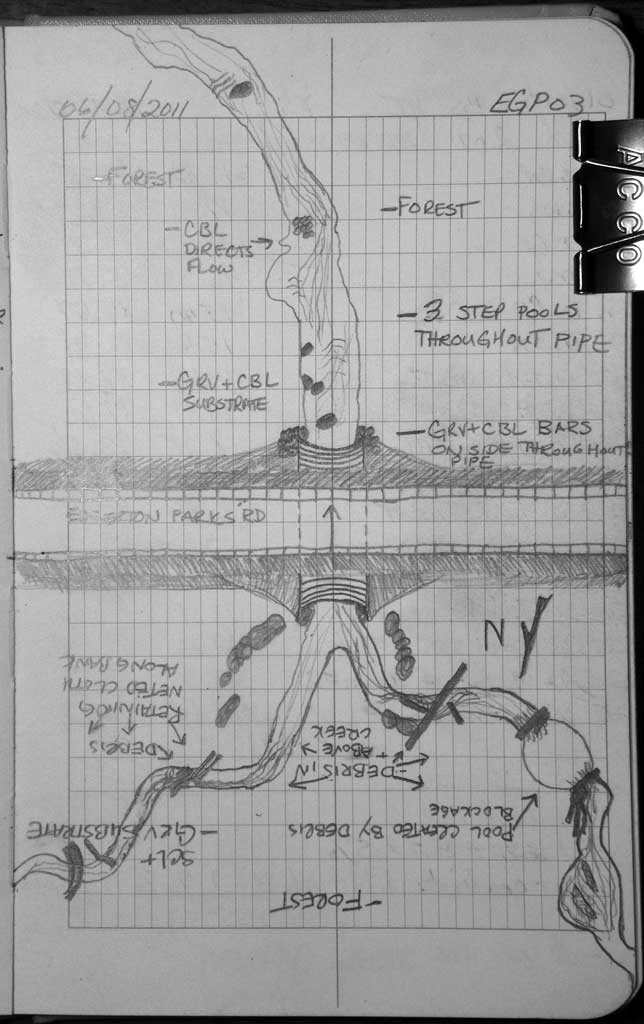 06/08/2011
EGP03
-FOREST
-FOREST
-CBL
DIRECTS
FLOW
-3 STEP POOLS
THROUGHOUT PIPE
-GRV+CBL
SUBSTRATE
-GRV+CBL BARS
ON SIDE THROUGHOUT
PIPE
PARKS RD
N
RETAINING
NETED CLOTH
ALONG BANK
DEBRIS
-DEBRIS IN
+ ABOVE
CREEK
POOL CREATED BY DEBRIS
BLOCKAGE
-GRV
SUBSTRATE
-FOREST
ACCO